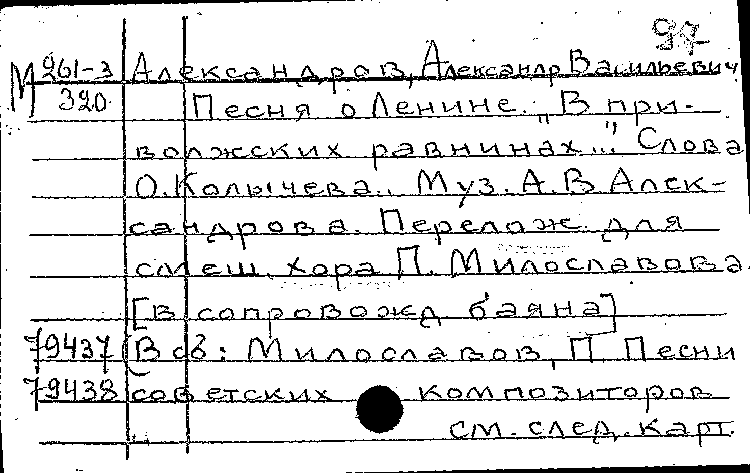 97
М 261-3 Александров, Александр Васильевич
320 Песня о Ленине. „В при-
волжских равнинах..." Слова
О. Колычева.. Муз. А.В Алек-
сандрова. Перелож. для
смеш. хора П. Милославова.
[В сопровожд баяна]
79437 (В сб: Милославов, П. Песни
79438 советских композиторов
см. след. карт.